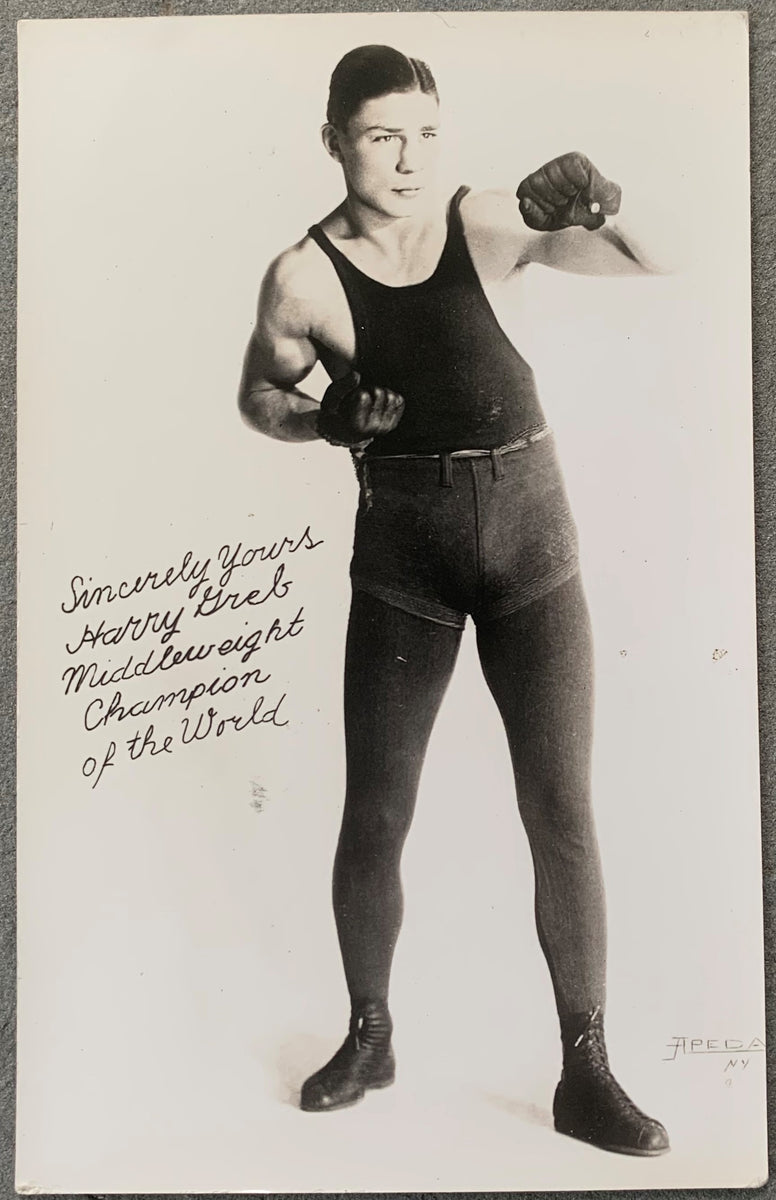 Sincerely Yours
Harry Greb
Middleweight
Champion
of the World
APEDA
NY